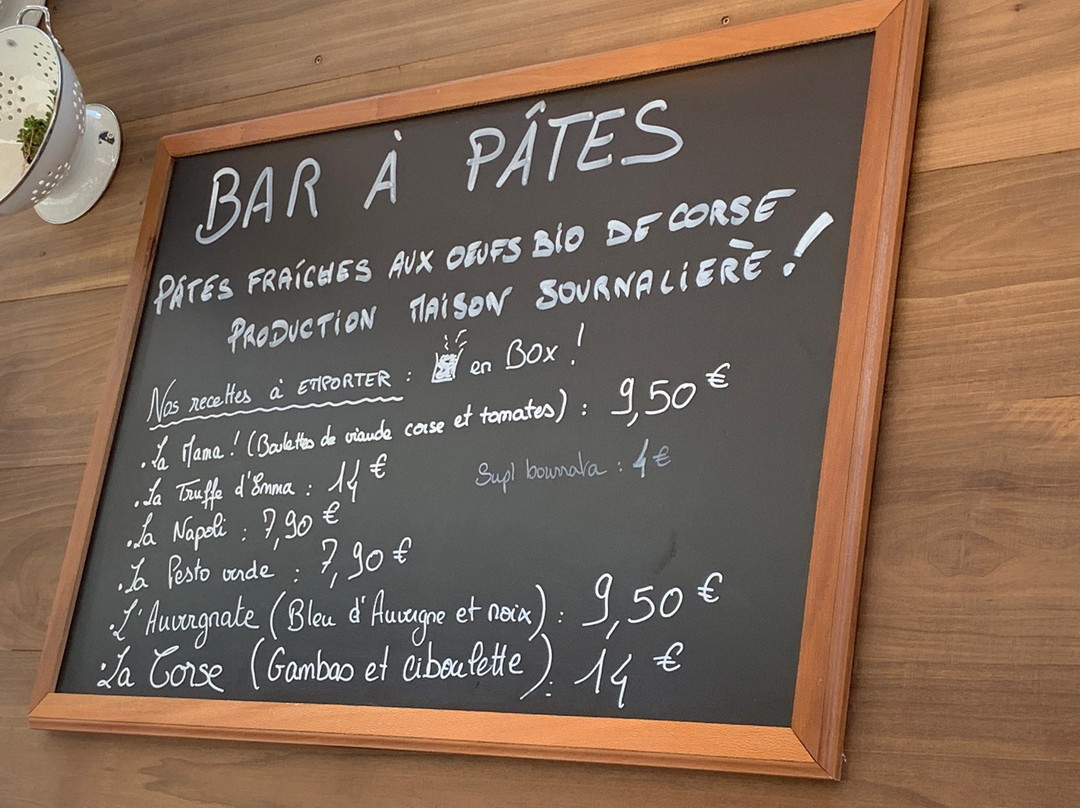 BAR À PÂTES
PÂTES FRAÎCHES AUX OEUFS BIO DE CORSE
PRODUCTION MAISON JOURNALIERÈ !
Nos recettes à EMPORTER : en Box !
. La Mama ! (Boulettes de viande corse et tomates) : 9,50 €
. La Truffe d'Emma : 14 €
Supl bourrata : 4 €
. La Napoli : 7,90 €
. La Pesto verde : 7,90 €
. L'Auvergnate (Bleu d'Auvergne et noix) : 9,50 €
. La Corse (Gambas et ciboulette) : 14 €